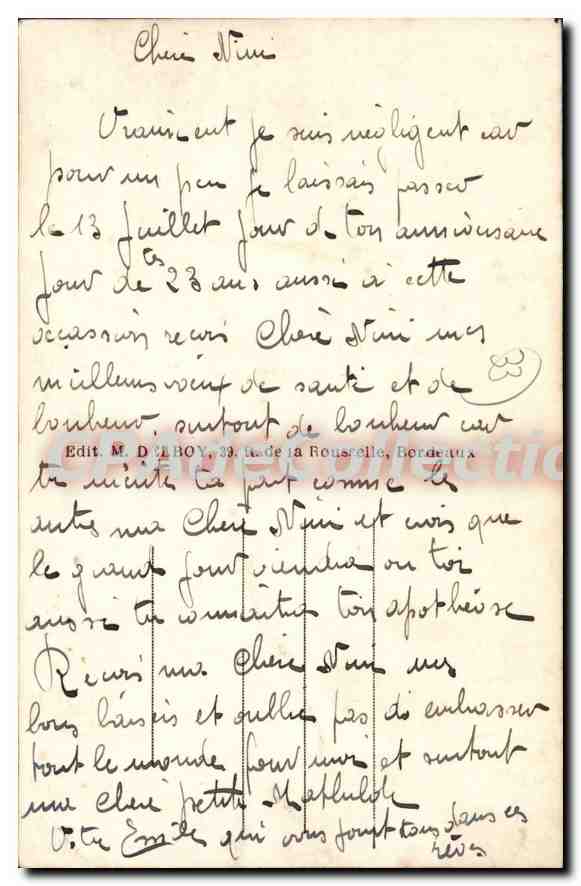 Chère Nini
Vraiment je suis négligent car
pour un peu je laissais passer
le 13 Juillet jour de ton anniversaire
jour de tes 23 ans aussi à cette
occassion recois Chère Nini mes
meilleurs voeux de santé et de
bonheur, surtout de bonheur car
Edit. M. DELBOY, 39, R. de la Rousselle, Bordeaux
tu mérite ta part comme les
autres ma Chère Nini et crois que
le grand jour viendra ou toi
aussi tu connaitra ton apothéose
Recois ma Chère Nini mes
bons baisers et oublie pas di embrasser
tout le monde pour moi et surtout
ma Chère petite Mathilde
Votre Emile qui vous dans ces
rêves